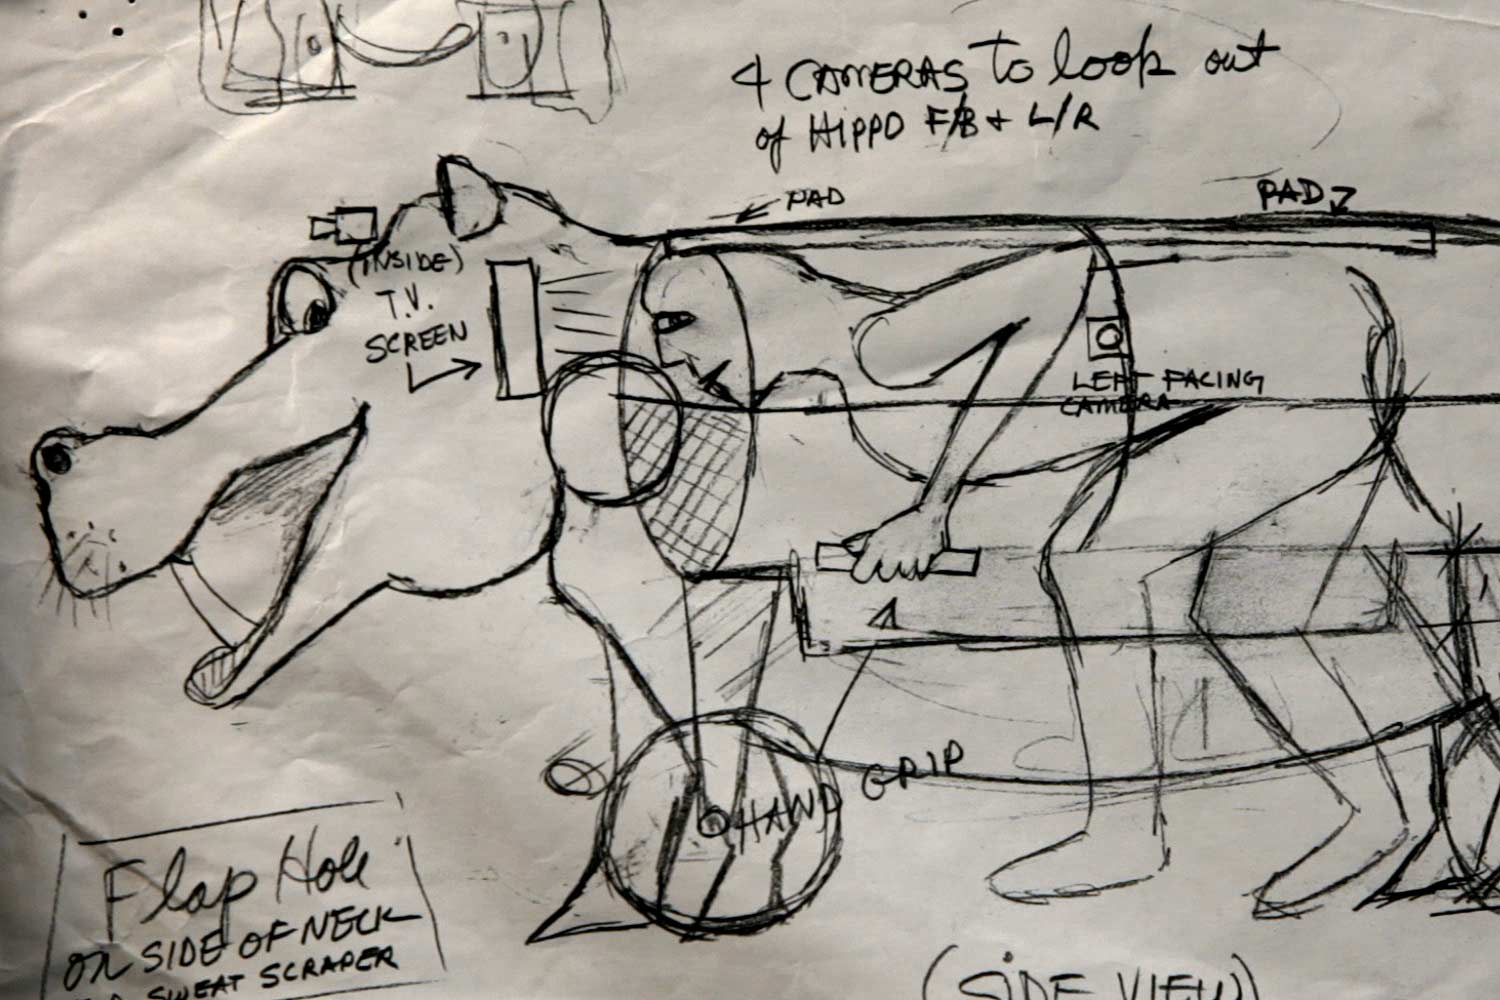 4 CAMERAS to look out
of HIPPO F/B + L/R
PAD
PAD
(INSIDE)
T.V.
SCREEN
LEFT FACING
CAMERA
HAND GRIP
Flap Hole
on SIDE OF NECK
SWEAT SCRAPER
(SIDE VIEW)